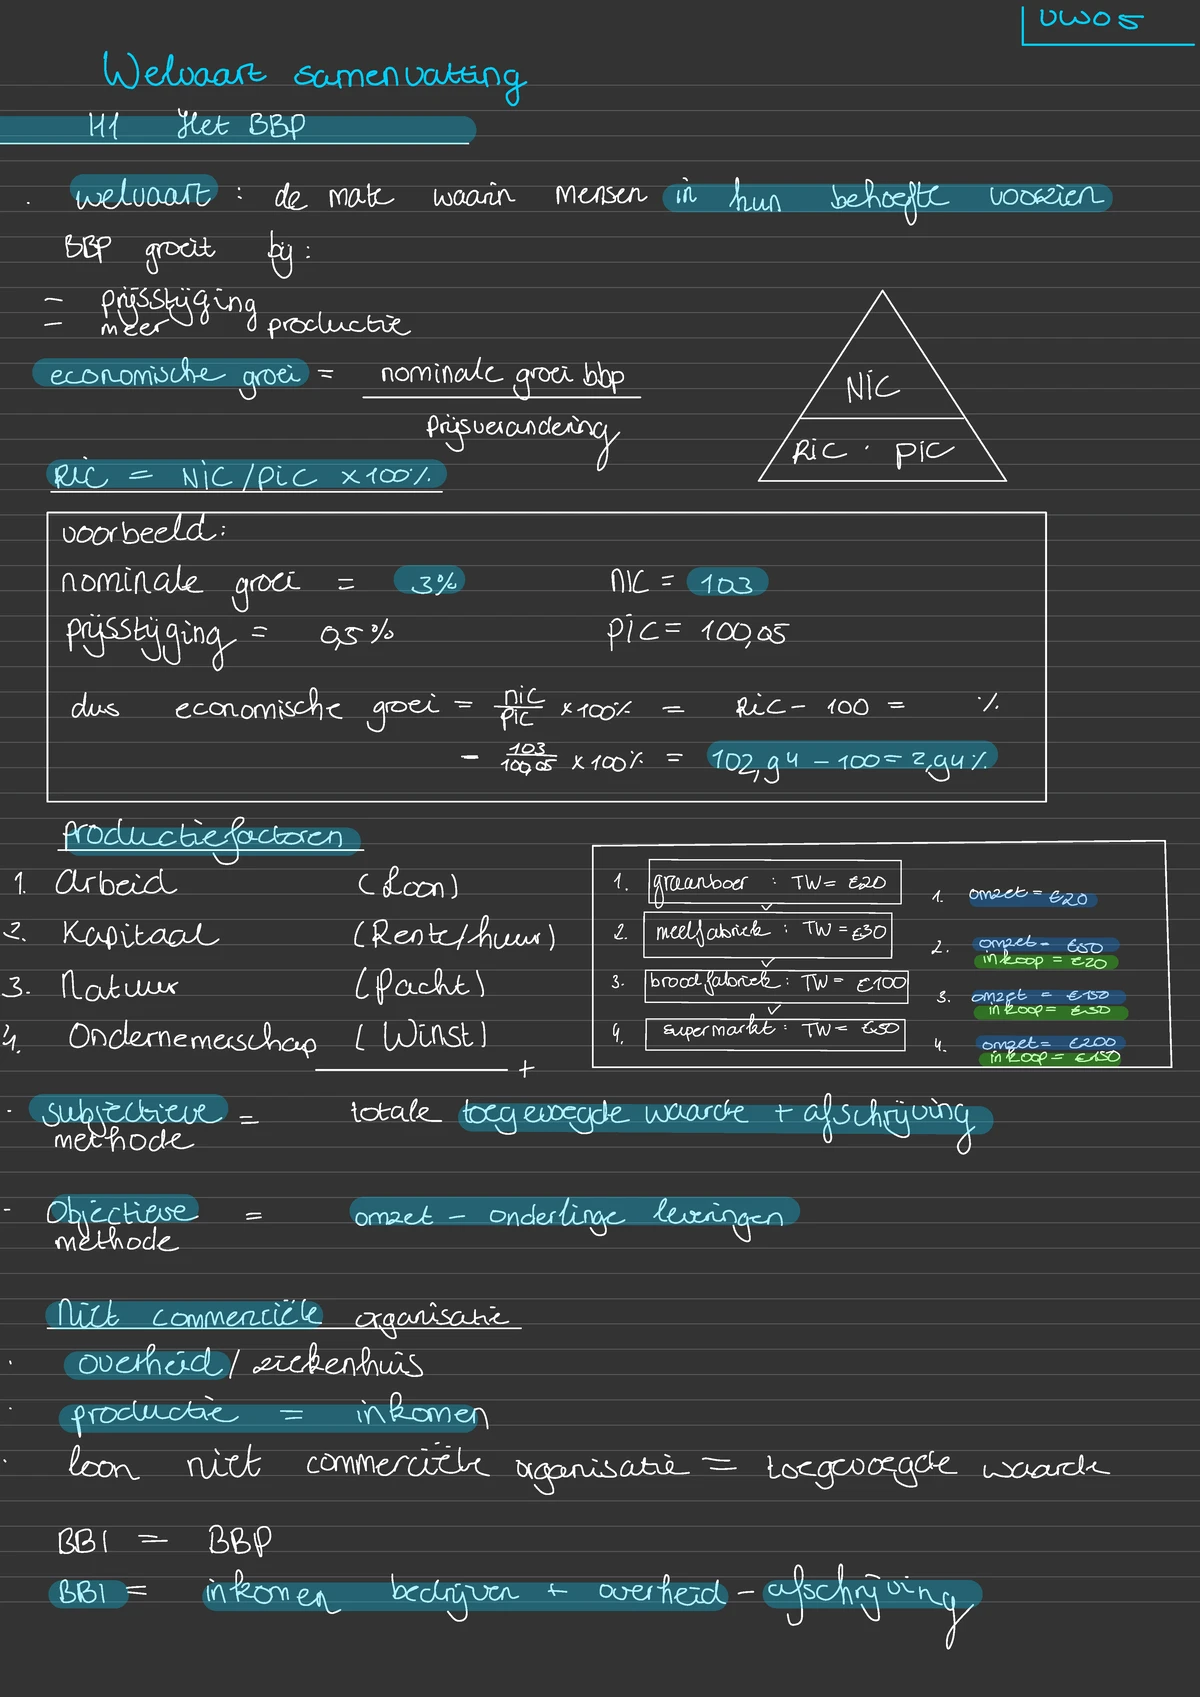 VWO 5
Welvaart samenvatting
H1 Het BBP
. welvaart : de mate waarin mensen in hun behoefte voorzien
BBP groeit bij :
- prijsstijging
- meer productie
economische groei = nominale groei bbp
prijsverandering
NIC
RIC . PIC
RIC = NIC / PIC x 100%
voorbeeld:
nominale groei = 3% NIC = 103
prijsstijging = 0,5% PIC = 100,05
dus economische groei = NIC / PIC x 100% = RIC - 100 = %
- 103 / 100,05 x 100% = 102,94 - 100 = 2,94%
productiefactoren
1. Arbeid (Loon)
2. Kapitaal (Rente/huur)
3. Natuur (Pacht)
4. Ondernemerschap (Winst)
+
1. graanboer : TW = €20
2. meelfabriek : TW = €30
3. broodfabriek : TW = €100
4. supermarkt : TW = €50
1. omzet = €20
2. omzet = €50
inkoop = €20
3. omzet = €150
inkoop = €50
4. omzet = €200
inkoop = €150
. subjectieve methode = totale toegevoegde waarde + afschrijving
- Objectieve methode = omzet - onderlinge leveringen
Niet commerciële organisatie
. overheid / ziekenhuis
. productie = inkomen
. loon niet commerciële organisatie = toegevoegde waarde
BBI = BBP
BBI = inkomen bedrijven + overheid - afschrijving